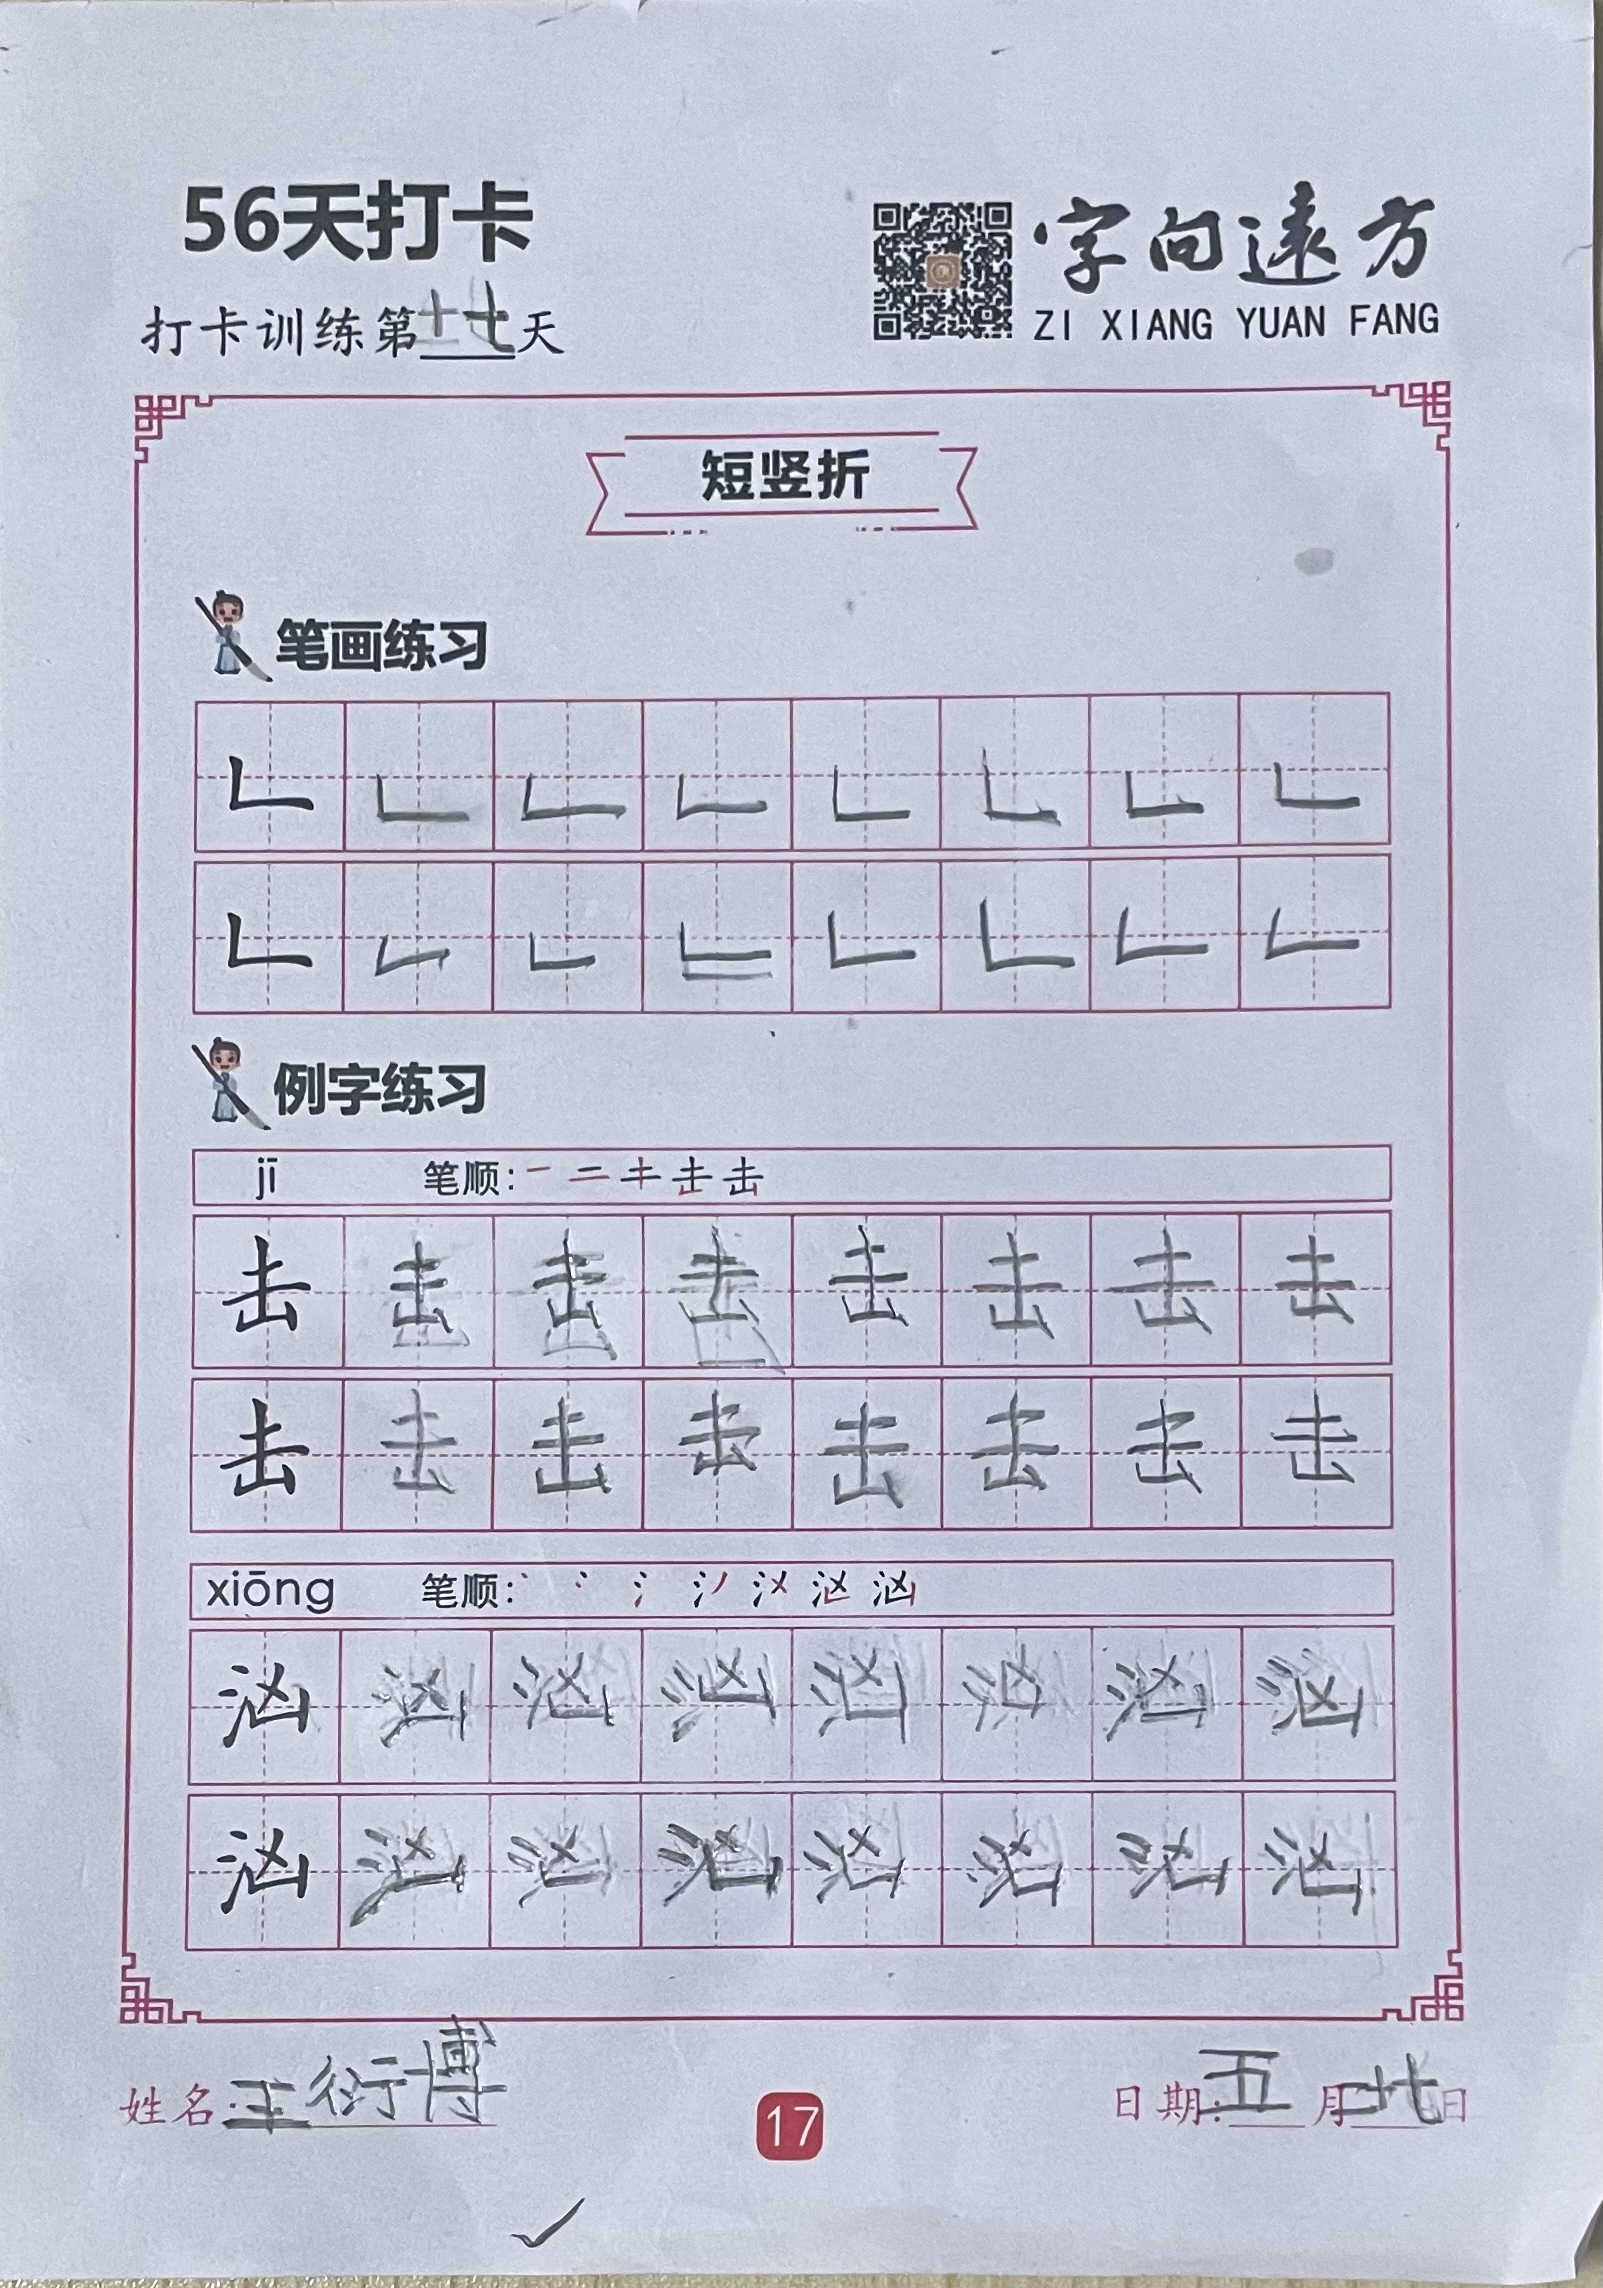 56天打卡
字向遠方
打卡训练第十七天
ZI XIANG YUAN FANG
短竖折
笔画练习
𠃊 𠃊 𠃊 𠃊 𠃊 𠃊 𠃊 𠃊
𠃊 𠃊 𠃊 𠃊 𠃊 𠃊 𠃊 𠃊
例字练习
jī 笔顺: 一 二 キ 击 击
击 击 击 击 击 击 击 击
击 击 击 击 击 击 击 击
xiōng 笔顺: 丶 冫 氵 汹
汹 汹 汹 汹 汹 汹 汹 汹
汹 汹 汹 汹 汹 汹 汹 汹
姓名:王衍博
17
日期:五月日